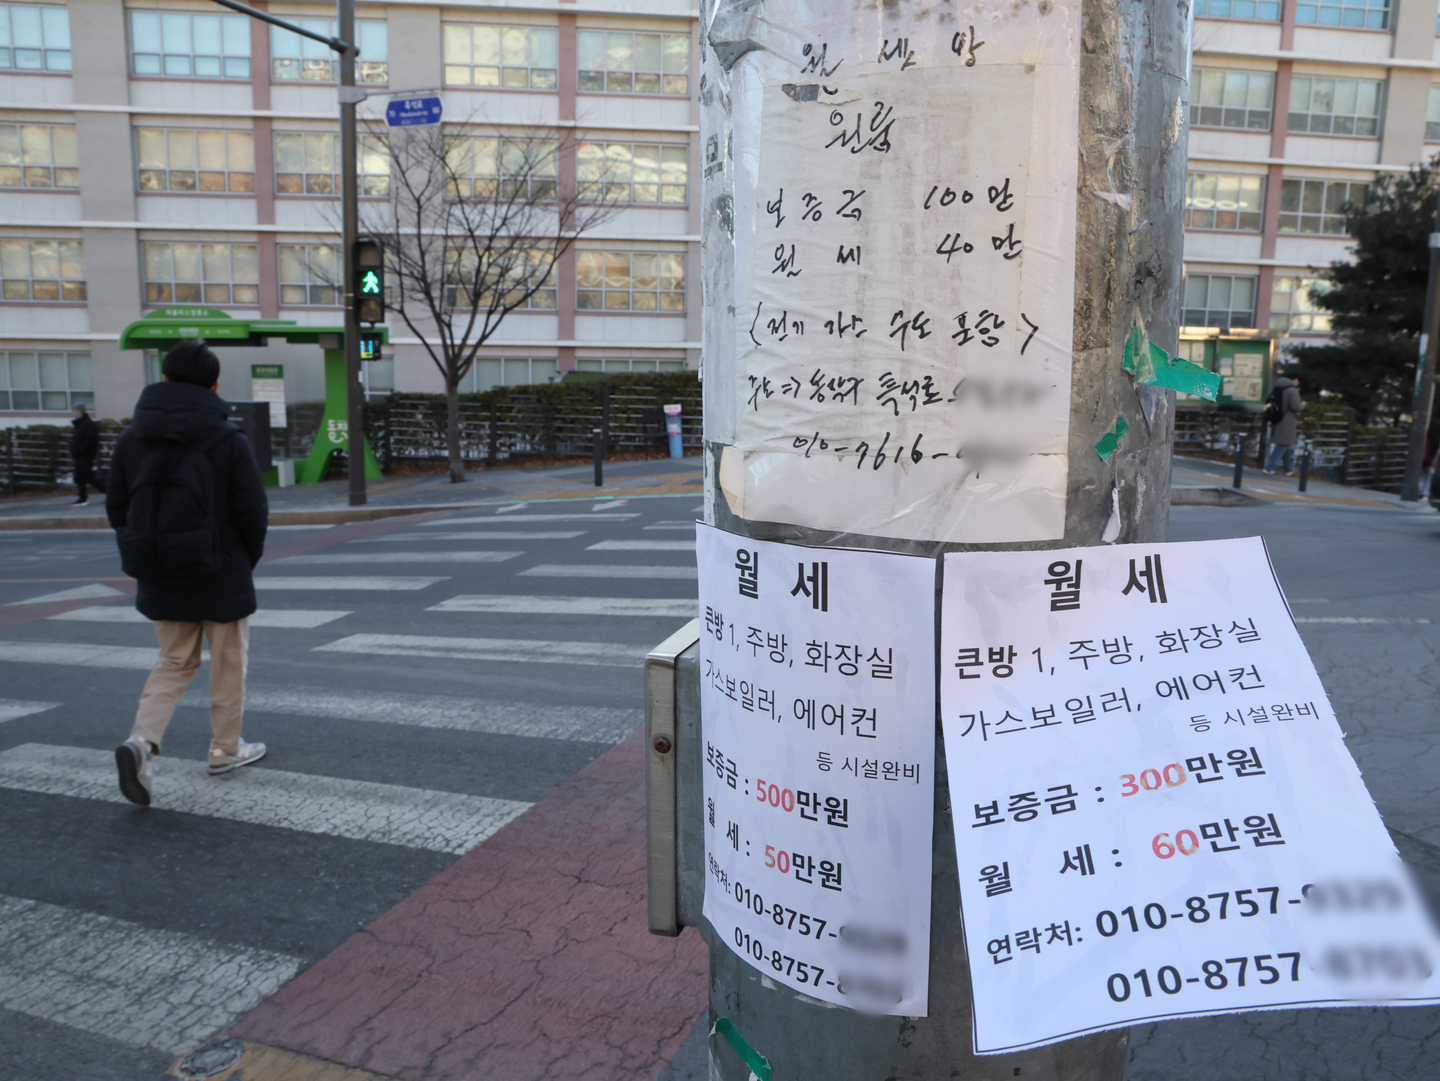 월 세 방
원룸
보증금 100만
월 세 40만
(전기 가스 수도 포함)
주소⇒동작구 흑석로
010-7616-
월 세
큰방 1, 주방, 화장실
가스보일러, 에어컨
등 시설완비
보증금 : 500만원
월 세 : 50만원
연락처: 010-8757-
010-8757-
월 세
큰방 1, 주방, 화장실
가스보일러, 에어컨
등 시설완비
보증금 : 300만원
월 세 : 60만원
연락처: 010-8757-
010-8757-
흑석로
동작